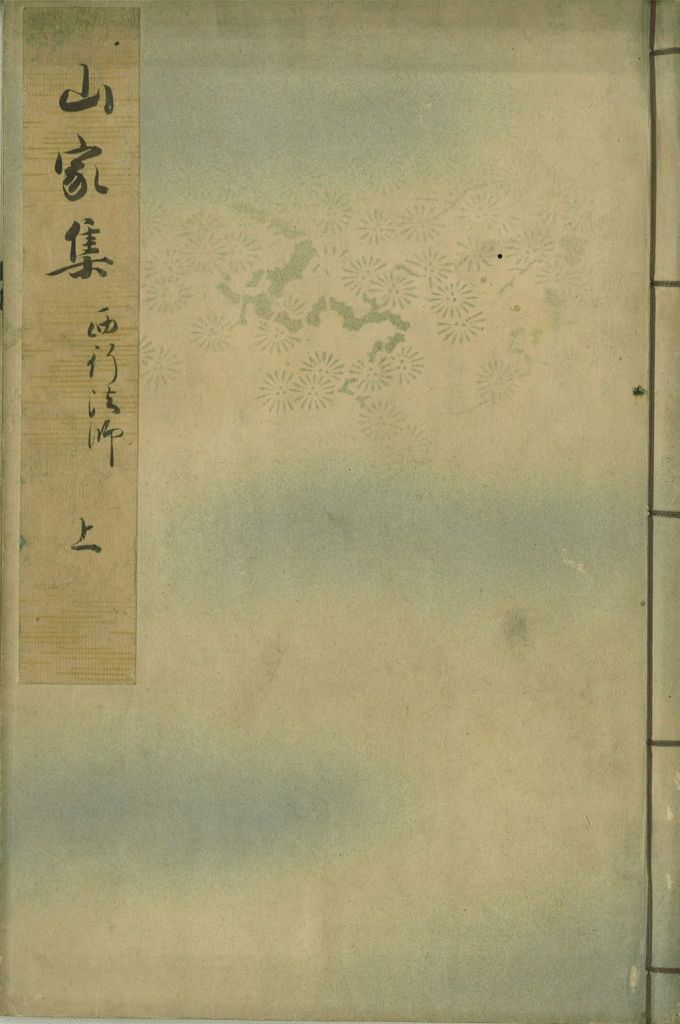 山家集
西行法師
上